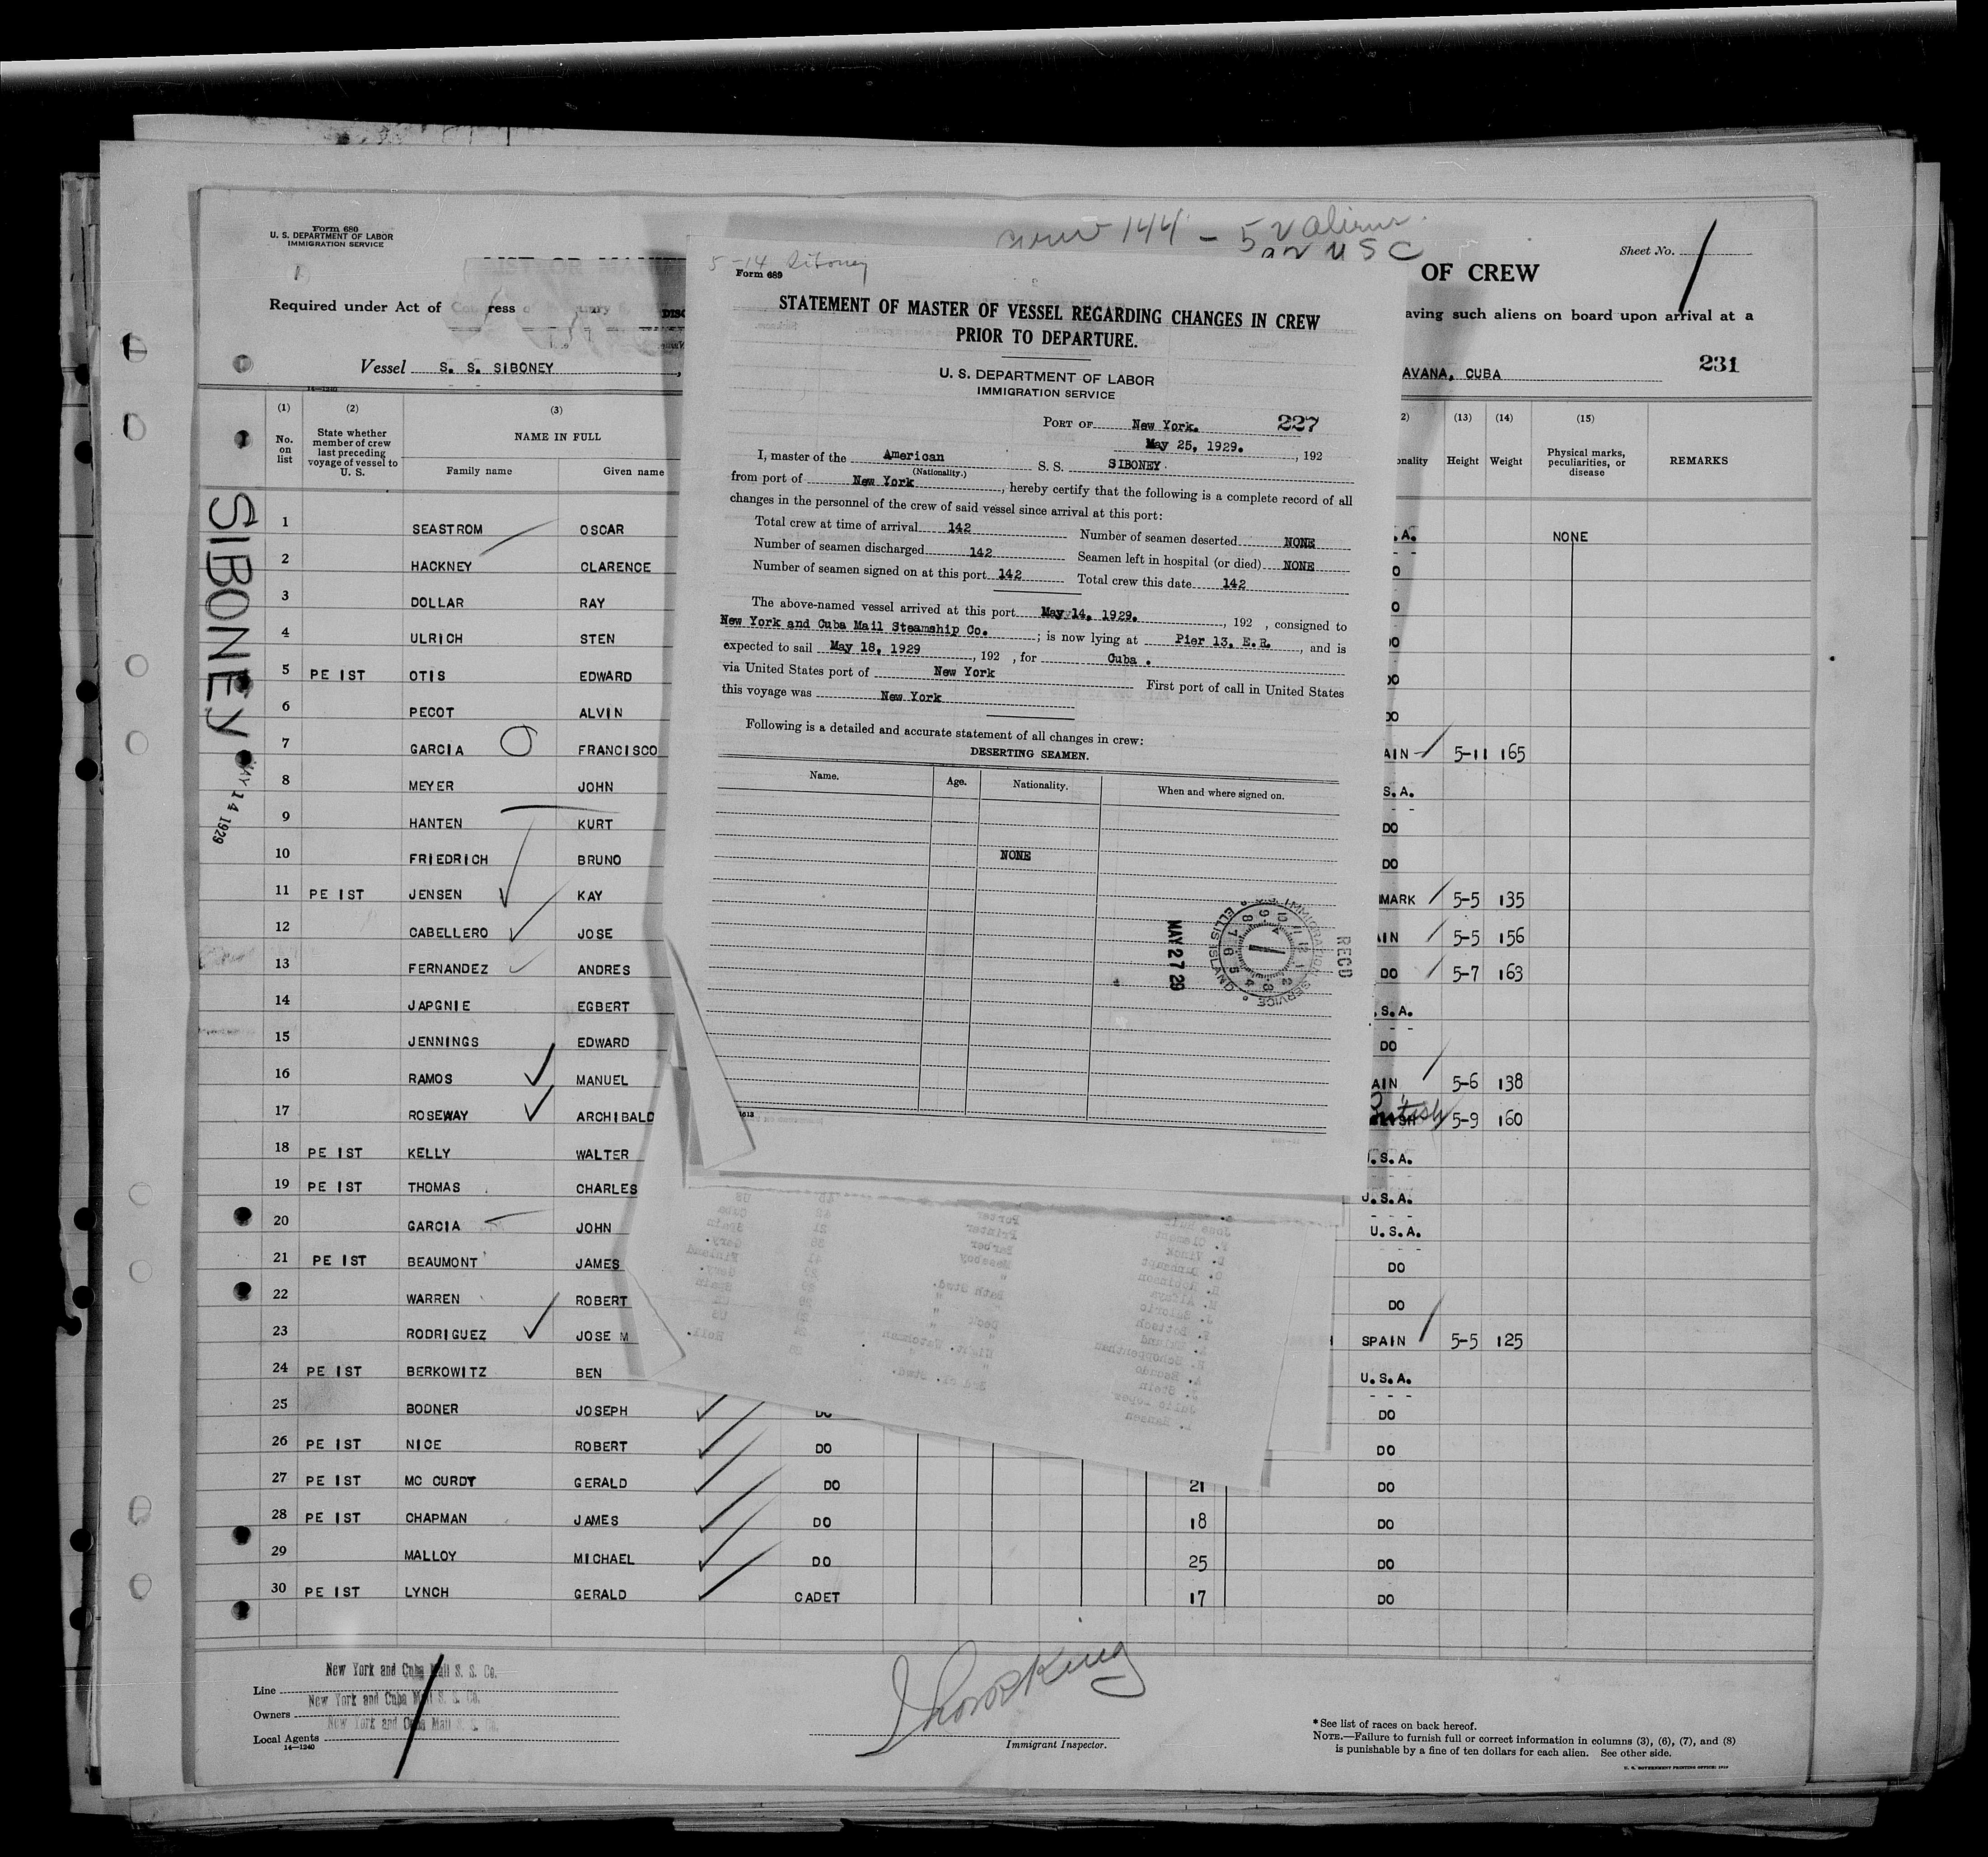 Form 680
U. S. DEPARTMENT OF LABOR
IMMIGRATION SERVICE
144 - 52 Aliens
92 USC
Sheet No. 1
OF CREW
Required under Act of
aving such aliens on board upon arrival at a
Vessel S. S. SIBONEY
AVANA, CUBA
231
14—1240
5-14 Siboney
Form 689
STATEMENT OF MASTER OF VESSEL REGARDING CHANGES IN CREW
PRIOR TO DEPARTURE.
U. S. DEPARTMENT OF LABOR
IMMIGRATION SERVICE
PORT OF New York. 227
May 25, 1929. , 192
I, master of the American S. S. SIBONEY.
(Nationality.)
from port of New York , hereby certify that the following is a complete record of all
changes in the personnel of the crew of said vessel since arrival at this port:
Total crew at time of arrival 142 Number of seamen deserted NONE
Number of seamen discharged 142 Seamen left in hospital (or died) NONE
Number of seamen signed on at this port 142 Total crew this date 142
The above-named vessel arrived at this port May 14, 1929. , 192 , consigned to
New York and Cuba Mail Steamship Co. ; is now lying at Pier 13, E.R. , and is
expected to sail May 18, 1929 , 192 , for Cuba .
via United States port of New York First port of call in United States
this voyage was New York
Following is a detailed and accurate statement of all changes in crew:
DESERTING SEAMEN.
Name. Age. Nationality. When and where signed on.
NONE
MAY 27 29
RECD
U.S. IMMIGRATION SERVICE
ELLIS ISLAND
SIBONEY
MAY 14 1929
(1) (2) (3) (13) (14) (15)
No. on list
State whether member of crew last preceding voyage of vessel to U. S.
NAME IN FULL
Family name Given name
Height Weight
Physical marks, peculiarities, or disease
REMARKS
1 SEASTROM OSCAR .A. NONE
2 HACKNEY CLARENCE
3 DOLLAR RAY
4 ULRICH STEN
5 PE IST OTIS EDWARD
6 PECOT ALVIN
7 GARCIA FRANCISCO AIN 5-11 165
8 MEYER JOHN S.A.
9 HANTEN KURT DO
10 FRIEDRICH BRUNO DO
11 PE IST JENSEN KAY MARK 5-5 135
12 CABELLERO JOSE AIN 5-5 156
13 FERNANDEZ ANDRES DO 5-7 163
14 JAPGNIE EGBERT .S.A.
15 JENNINGS EDWARD DO
16 RAMOS MANUEL AIN 5-6 138
17 ROSEWAY ARCHIBALD British 5-9 160
18 PE IST KELLY WALTER .S.A.
19 PE IST THOMAS CHARLES U.S.A.
20 GARCIA JOHN U.S.A.
21 PE IST BEAUMONT JAMES DO
22 WARREN ROBERT DO
23 RODRIGUEZ JOSE M SPAIN 5-5 125
24 PE IST BERKOWITZ BEN U.S.A.
25 BODNER JOSEPH DO DO
26 PE IST NICE ROBERT DO DO
27 PE IST MC CURDY GERALD DO 21 DO
28 PE IST CHAPMAN JAMES DO 18 DO
29 MALLOY MICHAEL DO 25 DO
30 PE IST LYNCH GERALD CADET 17 DO
Line New York and Cuba Mail S. S. Co.
Owners New York and Cuba Mail S. S. Co.
Local Agents New York and Cuba Mail S. S. Co.
14—1240
Immigrant Inspector.
* See list of races on back hereof.
NOTE.—Failure to furnish full or correct information in columns (3), (6), (7), and (8)
is punishable by a fine of ten dollars for each alien. See other side.